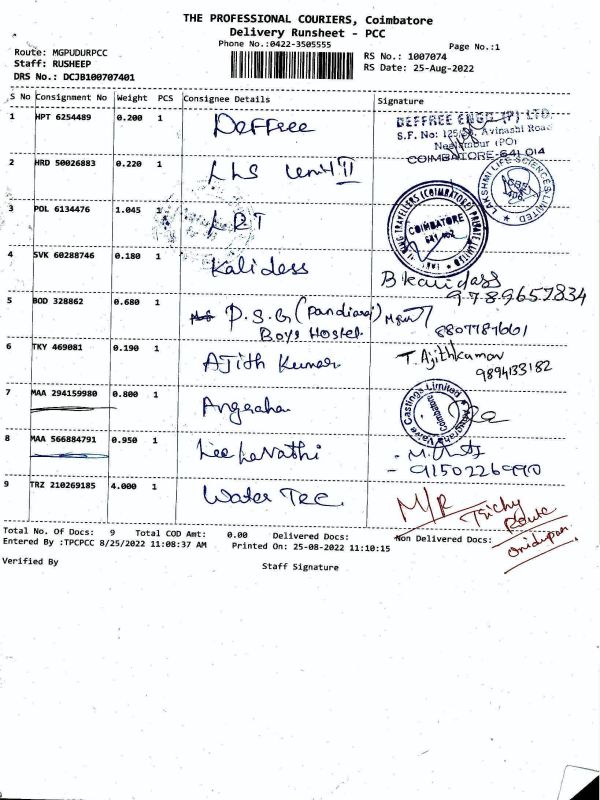 THE PROFESSIONAL COURIERS, Coimbatore
Delivery Runsheet - PCC
Phone No.:0422-3505555
Page No.:1
Route: MGPUDURPCC
Staff: RUSHEEP
DRS No.: DCJB100707401
RS No.: 1007074
RS Date: 25-Aug-2022
S No Consignment No Weight PCS Consignee Details Signature
1 HPT 6254489 0.200 1 Deffree
DEFFREE ENGG (P) LTD.
S.F. No: 125/ Avinashi Road
Neelambur (PO)
COIMBATORE-641 014
2 HRD 50026883 0.220 1 LLS Unit II
LAKSHMI LIFE SCIENCES LIMITED
CBE
3 POL 6134476 1.045 1 LRT
TRAVELLERS (COIMBATORE) PRIVATE LIMITED
COIMBATORE
4 SVK 60288746 0.180 1 Kalidess
B kalidass
9789657834
5 BOD 328862 0.680 1 P.S.G (Pandiaraj)
Boys Hostel
8807787661
6 TKY 469081 0.190 1 AJith Kumar
T. Ajithkumar
9894133182
7 MAA 294159980 0.800 1 Angraha
Anugraha Valve Castings Limited
Coimbatore
8 MAA 566884791 0.950 1 Leelavathi
- 9150226990
9 TRZ 210269185 4.000 1 Water Tec
M/R
Trichy
Route
Ondipan.
Total No. Of Docs: 9 Total COD Amt: 0.00 Delivered Docs: Non Delivered Docs:
Entered By :TPCPCC 8/25/2022 11:08:37 AM Printed On: 25-08-2022 11:10:15
Verified By
Staff Signature